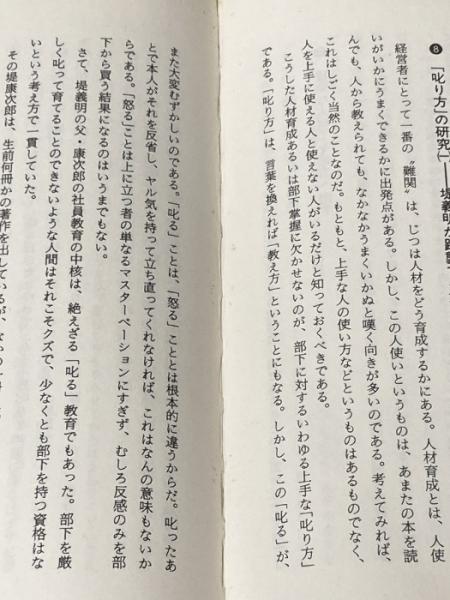 ❽ 「叱り方」の研究㈠――堤義明が
経営者にとって一番の〝難関〟は、じつは人材をどう育成するかにある。人材育成とは、人使
いがいかにうまくできるかに出発点がある。しかし、この人使いというものは、あまたの本を読
んでも、人から教えられても、なかなかうまくいかぬと嘆く向きが多いのである。考えてみれば、
これはしごく当然のことなのだ。もともと、上手な人の使い方などというものはあるものでなく、
人を上手に使える人と使えない人がいるだけと知っておくべきである。
こうした人材育成あるいは部下掌握に欠かせないのが、部下に対するいわゆる上手な「叱り方」
である。「叱り方」は、言葉を換えれば「教え方」ということにもなる。しかし、この「叱る」が、
また大変むずかしいのである。「叱る」ことは、「怒る」こととは根本的に違うからだ。叱ったあ
とで本人がそれを反省し、ヤル気を持って立ち直ってくれなければ、これはなんの意味もないか
らである。「怒る」ことは上に立つ者の単なるマスターベーションにすぎず、むしろ反感のみを部
下から買う結果になるのはいうまでもない。
さて、堤義明の父・康次郎の社員教育の中核は、絶えざる「叱る」教育でもあった。部下を厳
しく叱って育てることのできないような人間はそれこそクズで、少なくとも部下を持つ資格はな
いという考え方で一貫していた。
その堤康次郎は、生前何冊かの著作を出しているが、